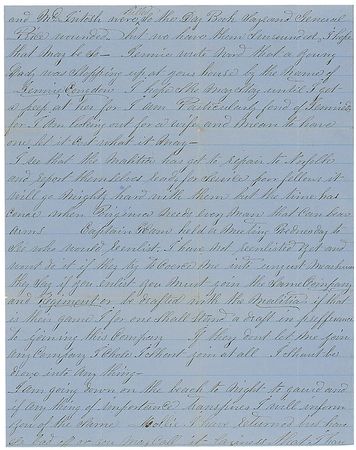 and McIntosh were, so the Day Book says and General
Price wounded. but we have them surrounded, I hope
that may be so— Jennie wrote word that a young
lady was stopping up at your house by the name of
Jennie I hope she may stay until I get
a peep at her for I am Particularly fond of Jennies
for I am looking out for a wife and mean to have
one let it cost what it may—
I see that the Malitia has got to repair to Norfolk
and report themselves ready for Service poor fellows it
will go mighty hard with them but the time has
come when Virginia needs every man that can bear
arms. Captain held a Meeting Wednesday to
see who would reenlist I have not reenlisted yet and
wont do it if they try to coerce me into unjust measures
they say if you enlist you must join the same Company
and Regiment or be drafted with the Malitia if that
is their game I for one shall stand a draft in preffference
to joining this Company If they dont let me join
any Company I chose I shant join at all I shant be
drove into any thing—
I am going down on the beach to night to guard and
if any thing of importance transpires I will inform
you of the same I have returned but have
so or you may call it What I have